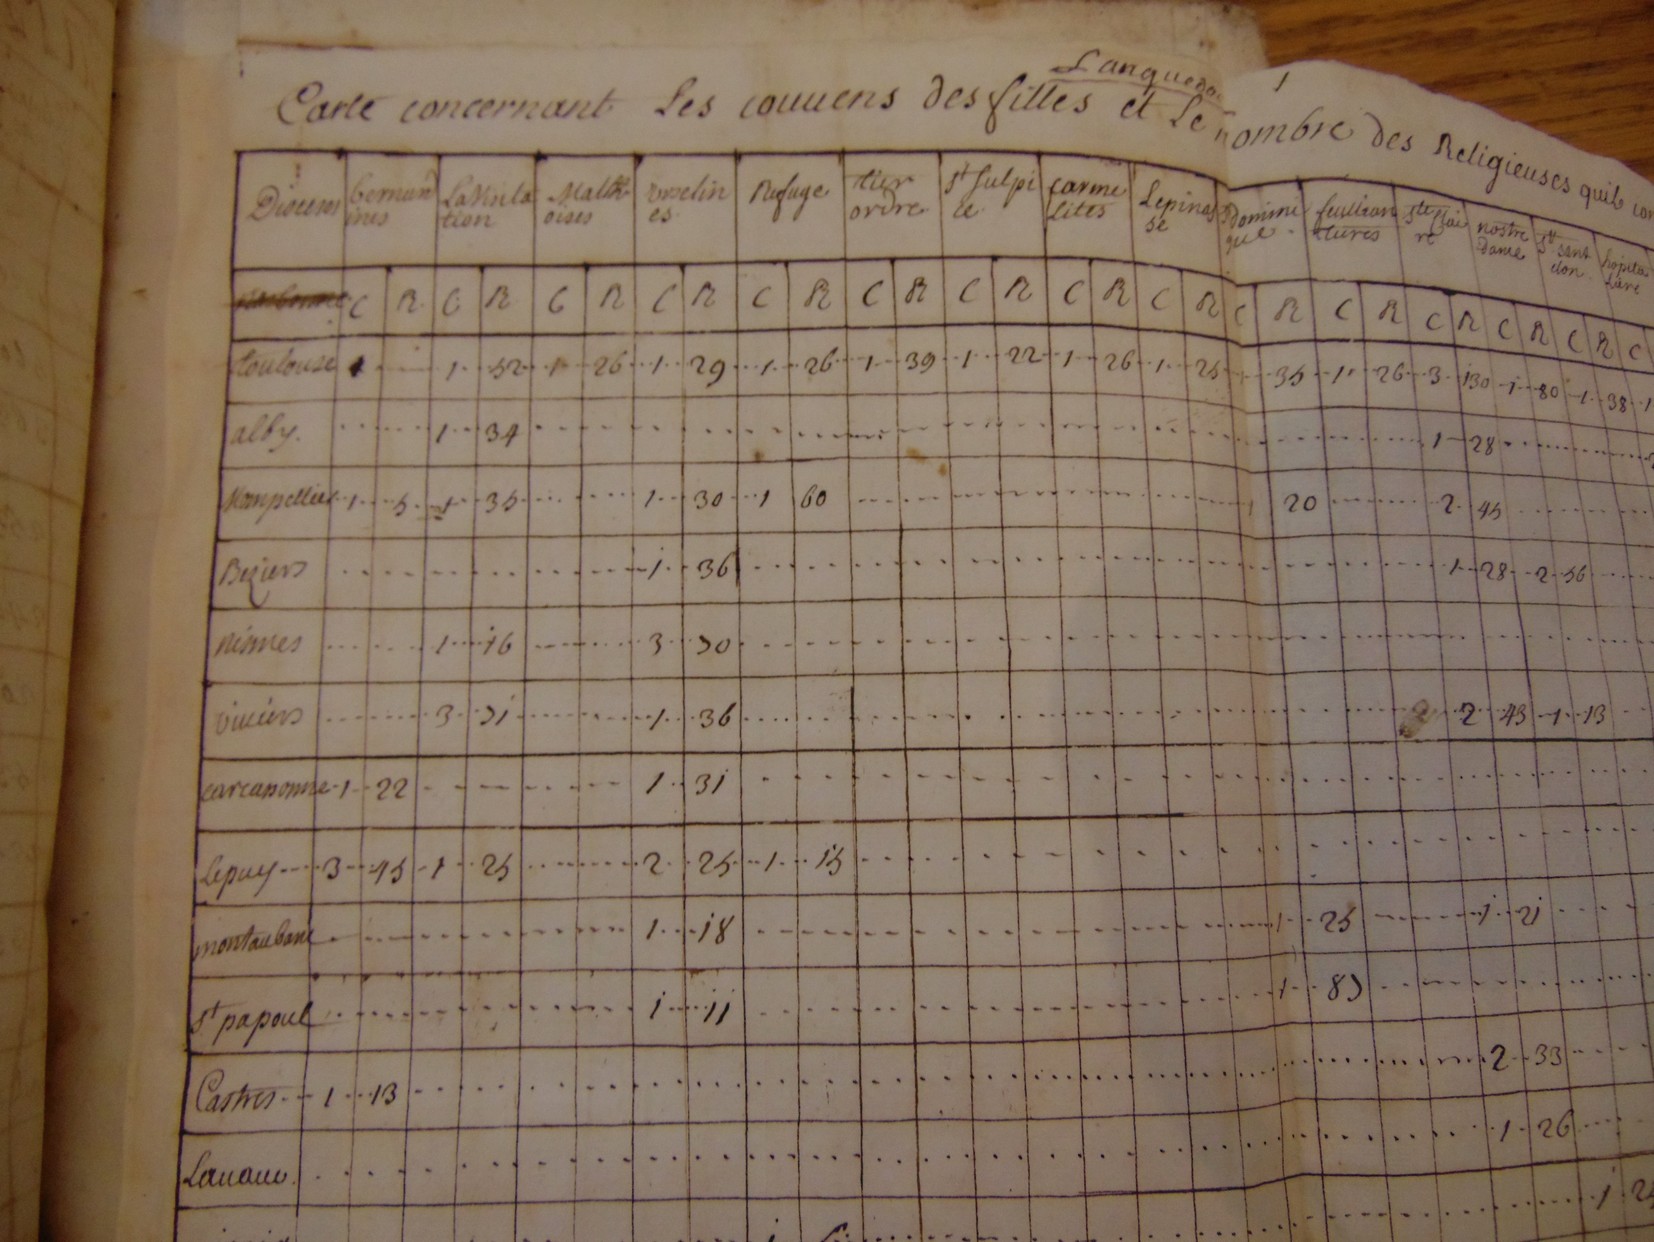 Languedoc
1
Carte concernant Les couuens des filles et Le nombre des Religieuses quils
Dioceses bernardines La Visitation Malthoises urselines Refuge tier ordre st sulpice carmelites Lepinasse dominique feullantines ste claire nostre dame
C R C R C R C R C R C R C R C R C R C R C R C R C R C R C
toulouse 1 1 52 1 26 1 29 1 26 1 39 1 22 1 26 1 25 35 1 26 3 130 1 80 1 38 1
alby. 1 34 1 28
Monpellier 1 5 1 35 1 30 1 60 1 20 2 45
Beziers 1 36 1 28 2 56
nismes 1 16 3 70
viuiers 3 71 1 36 2 43 1 13
carcasonne 1 22 1 31
Lepuy 3 45 1 25 2 25 1 15
montauban 1 18 1 25 1 21
st papoul 1 11 1 87
Castres 1 13 2 33
Lauaur. 1 26
1